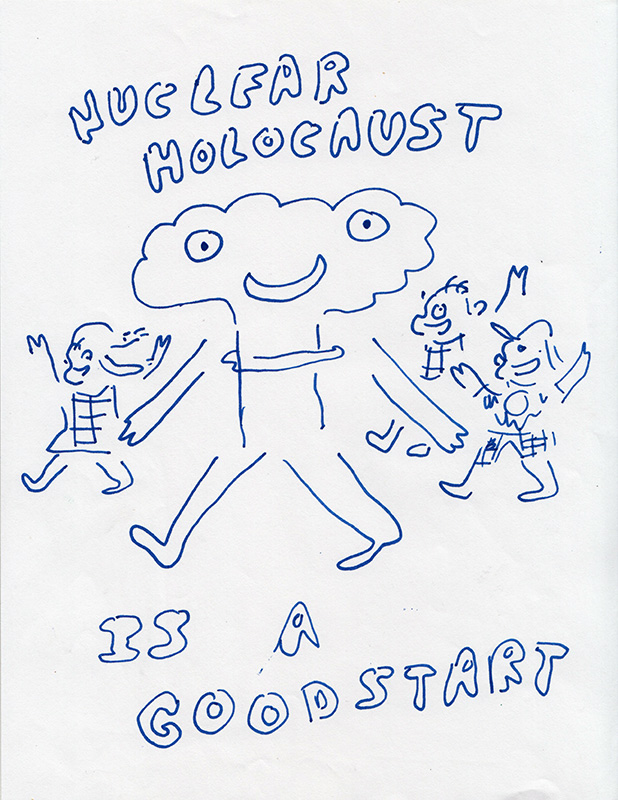 NUCLEAR
HOLOCAUST
IS A
GOOD START